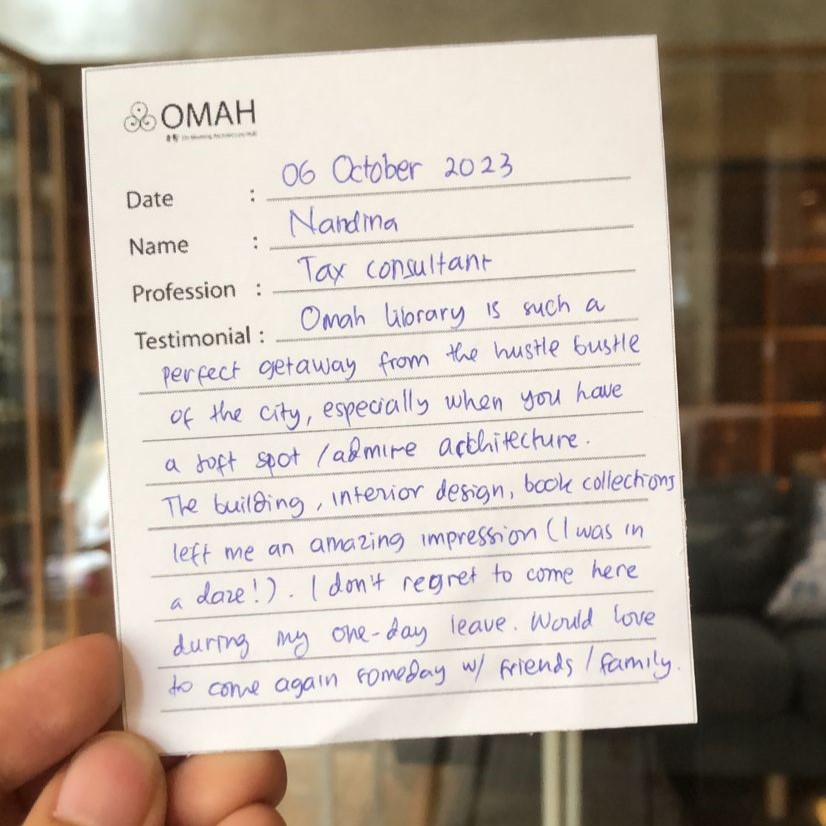 OMAH
Date : 06 October 2023
Name : Nandina
Profession : Tax consultant
Testimonial : Omah library is such a
perfect getaway from the hustle bustle
of the city, especially when you have
a soft spot / admire architecture.
The building, interior design, book collections
left me an amazing impression (I was in
a daze!). I don't regret to come here
during my one-day leave. Would love
to come again someday w/ friends / family.